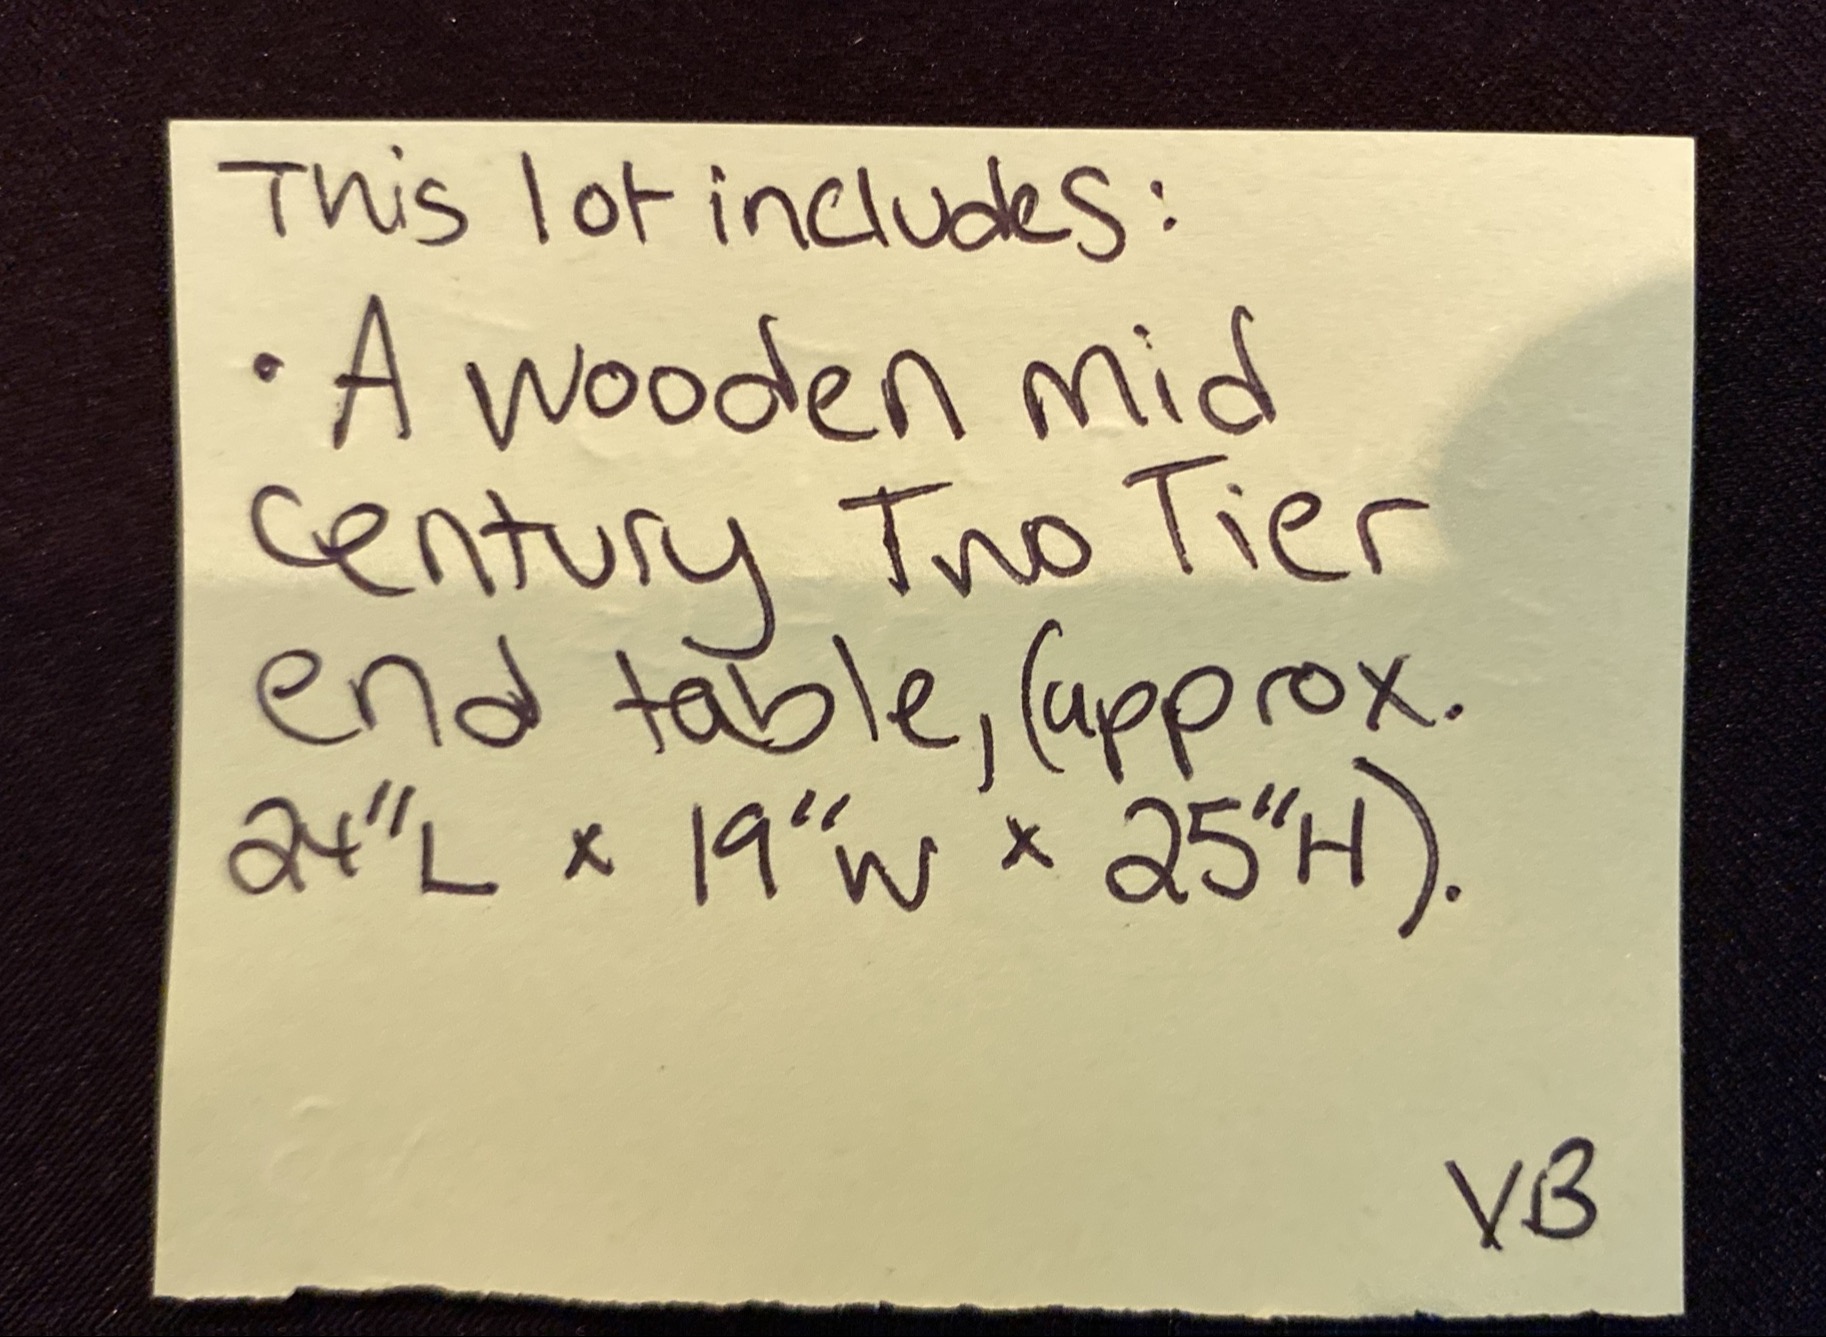 This lot includes:
• A wooden mid
century Two Tier
end table, (approx.
24"L x 19"W x 25"H).
VB